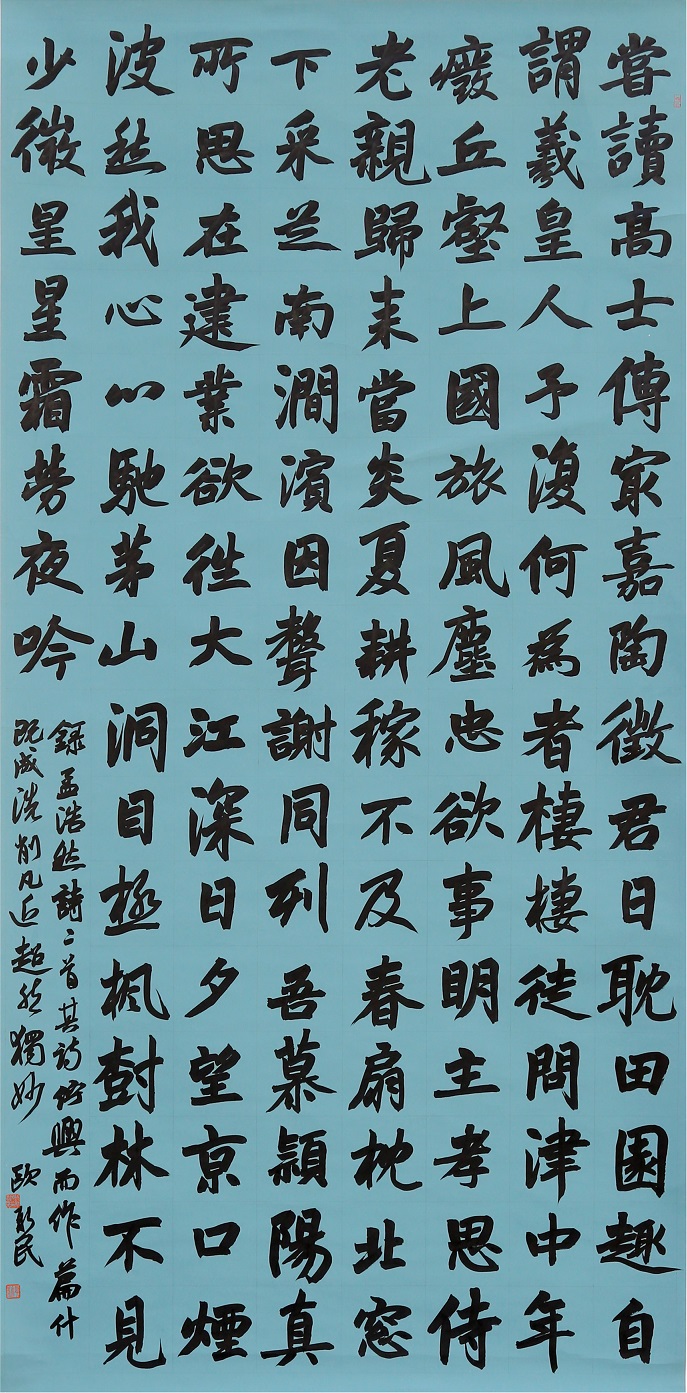 嘗讀高士傳㝡嘉陶徵君日耽田園趣自
謂羲皇人予復何為者棲棲徒問津中年
廢丘壑上國旅風塵忠欲事明主孝思侍
老親歸來當炎夏耕稼不及春扇枕北窓
下采芝南澗濱因聲謝同列吾慕潁陽真
所思在建業欲往大江深日夕望京口煙
波愁我心心馳茅山洞目極楓樹林不見
少微星星霜勞夜吟
錄孟浩然詩二首其詩佇興而作篇什
既成洗削凡近超然獨妙 歐民